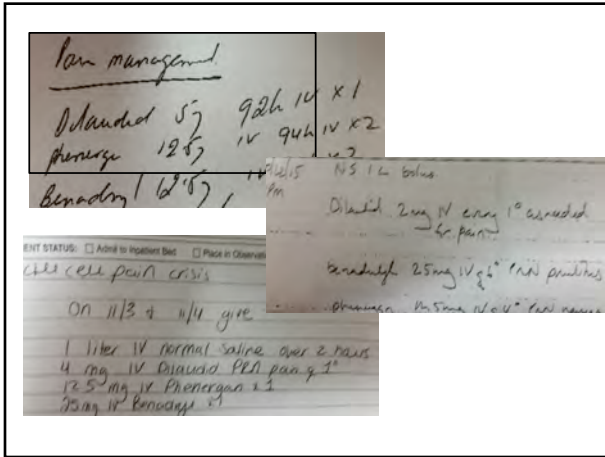 Pain management
Dilaudid 5 q2h IV x 1
phenerge 12.5 IV q4h IV x 2
Benadryl 12.5
NS 1L bolus
PM
Dilaudid 2mg IV every 1° as needed
for pain
25mg IV q 6° PRN
12.5mg IV q 4° PRN
ENT STATUS: ☐ Admit to Inpatient Bed ☐ Place in Observati
cell pain crisis
On 11/3 + 11/4 give
1 liter IV normal saline over 2 hours
4 mg IV Dilaudid PRN pain q 1°
12.5 mg IV Phenergan x 1
25mg IV Benadryl x1